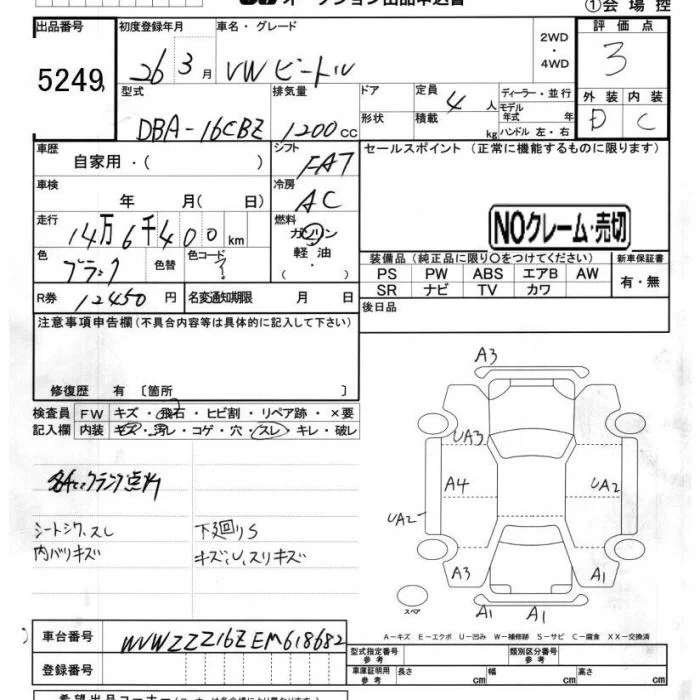 オークション出品申込書
①会場控
出品番号
5249
初度登録年月
26 3月
車名・グレード
VWビートル
2WD
・
4WD
評価点
3
型式
DBA-16CBZ
排気量
1200cc
ドア
形状
定員
4人
積載
kg
ディーラー・並行
モデル年式 年
ハンドル 左・右
外装 内装
D C
車歴
自家用・( )
シフト
FA7
セールスポイント(正常に機能するものに限ります)
車検
年 月( 日)
冷房
AC
走行
14万6千400km
燃料
ガソリン
軽油
・( )
NOクレーム・売切
色
ブラック
色替
色コード
?
装備品(純正品に限り○をつけてください)
新車保証書
PS PW ABS エアB AW
有・無
SR ナビ TV カワ
R券
12450円
名変通知期限 月 日
後日品
注意事項申告欄(不具合内容等は具体的に記入して下さい)
修復歴 有〔箇所 〕
検査員記入欄
FW キズ・飛石・ヒビ割・リペア跡・×要
内装 キズ・汚レ・コゲ・穴・スレ・キレ・破レ
点灯
シートシワ、スレ
内バリキズ
下廻りS
キズ、U、スリキズ
A3
UA3
A4
UA2
UA2
A3
A1
A1
A1
スペア
A-キズ E-エクボ U-凹み W-補修跡 S-サビ C-腐食 XX-交換済
車台番号
WVWZZZ16ZEM618682
登録番号
型式指定番号
参考
類別区分番号
参考
車庫証明用
参考
長さ cm
幅 cm
高さ cm
希望出品コーナー